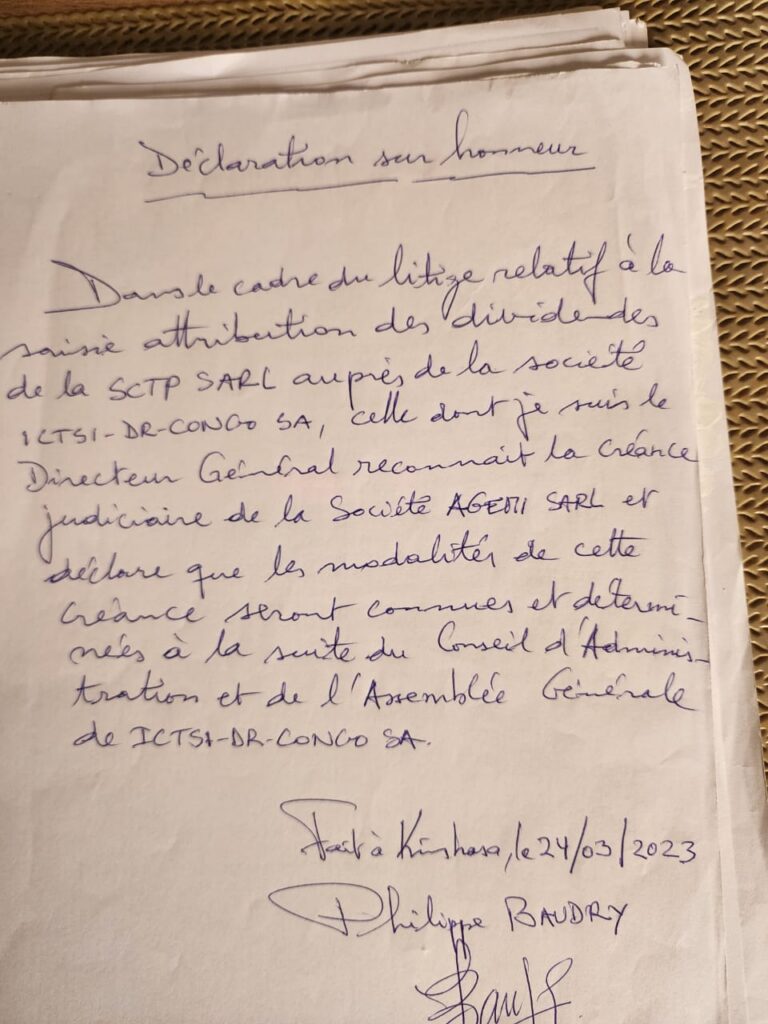 Déclaration sur honneur
Dans le cadre du litige relatif à la
saisie attribution des dividendes
de la SCTP SARL auprès de la société
ICTSI-DR-CONGO SA, celle dont je suis le
Directeur Général reconnait la créance
judiciaire de la Société AGEMI SARL et
déclare que les modalités de cette
créance seront connues et détermi-
nées à la suite du Conseil d'Adminis-
tration et de l'Assemblée Générale
de ICTSI-DR-CONGO SA.
Fait à Kinshasa, le 24/03/2023
Philippe BAUDRY